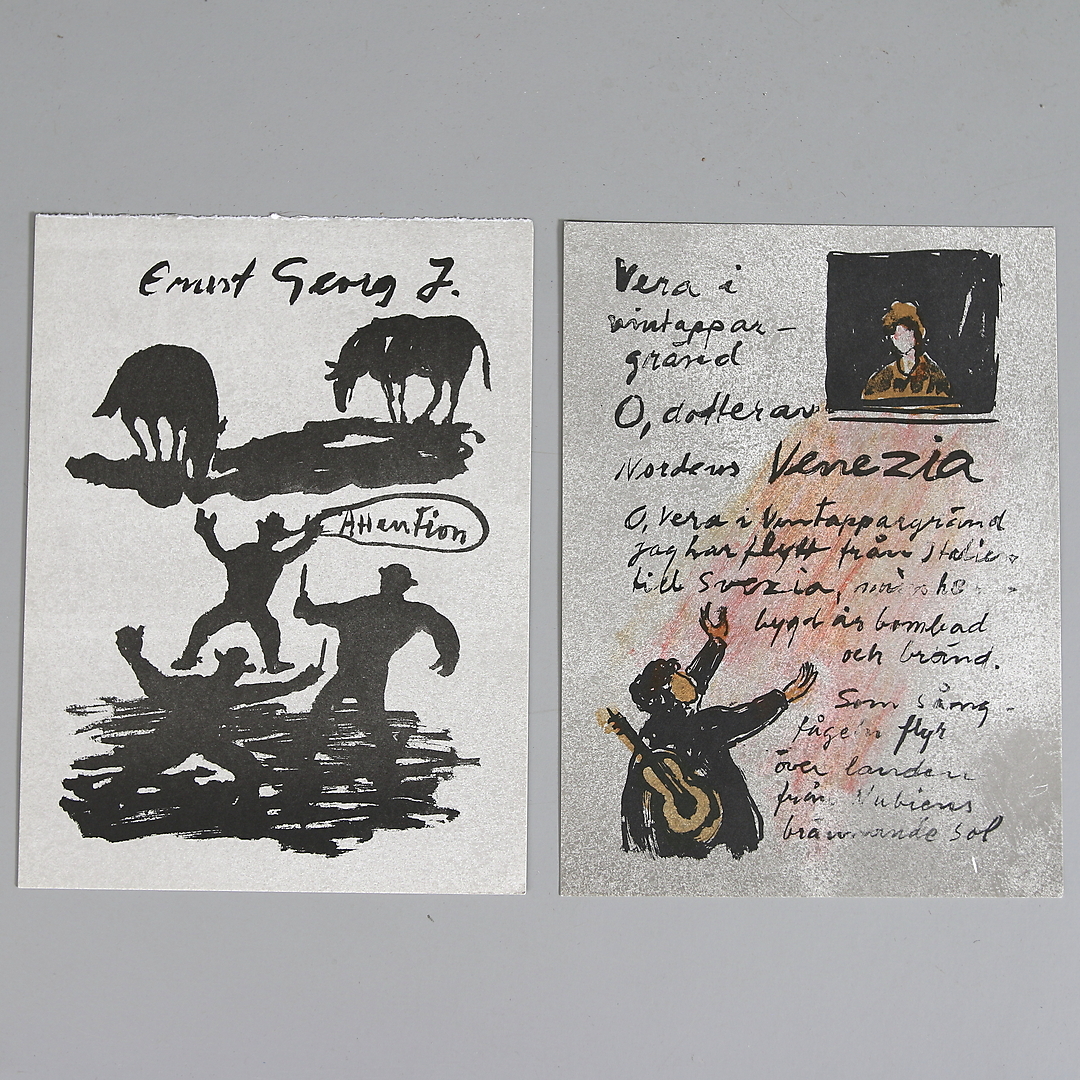 Ernst Georg J.
Attention
Vera i
vintappar-
gränd
O, dotter av
Nordens Venezia
O, Vera i Vintappargränd
jag har flytt från Italie
till Svezia, min
bygd är bombad
och bränd.
Som sång-
fågeln flyr
över landen
från Nubiens
brännande sol